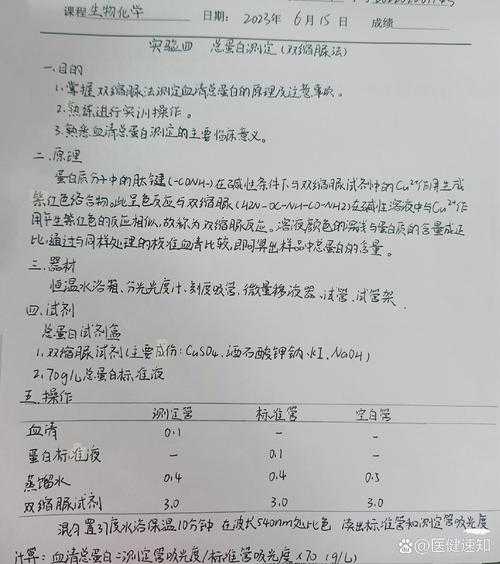 课程 生物化学 日期: 2023年 6月15日 成绩
实验四 总蛋白测定(双缩脲法)
一.目的
1.掌握双缩脲法测定血清总蛋白的原理及注意事项。
2.熟练进行实训操作。
3.熟悉血清总蛋白测定的主要临床意义。
二.原理
蛋白质分子中的肽键(-CONH-)在碱性条件下与双缩脲试剂中的Cu²⁺作用生成
紫红色络合物。此呈色反应与双缩脲(H2N-OC-NH-CO-NH2)在碱性溶液中与Cu²⁺作
用产生紫红色的反应相似,故称为双缩脲反应。溶液颜色的深浅与蛋白质的含量成正
比,通过与同样处理的校准血清比较,即可算出样品中总蛋白的含量。
三.器材
恒温水浴箱、分光光度计、刻度吸管、微量移液器、试管、试管架.
四.试剂
总蛋白试剂盒
1.双缩脲试剂(主要成份:CuSO4、酒石酸钾钠、KI、NaOH)
2.70g/L总蛋白标准液
五.操作
测定管 标准管 空白管
血清 0.1 - -
蛋白标准液 - 0.1 -
蒸馏水 0.4 0.4 0.5
双缩脲试剂 3.0 3.0 3.0
混匀置37度水浴保温10分钟 在波长540nm处比色 读出标准管和测定管吸光度
计算:血清总蛋白=测定管吸光度/标准管吸光度×70 (g/L)
@医健速知